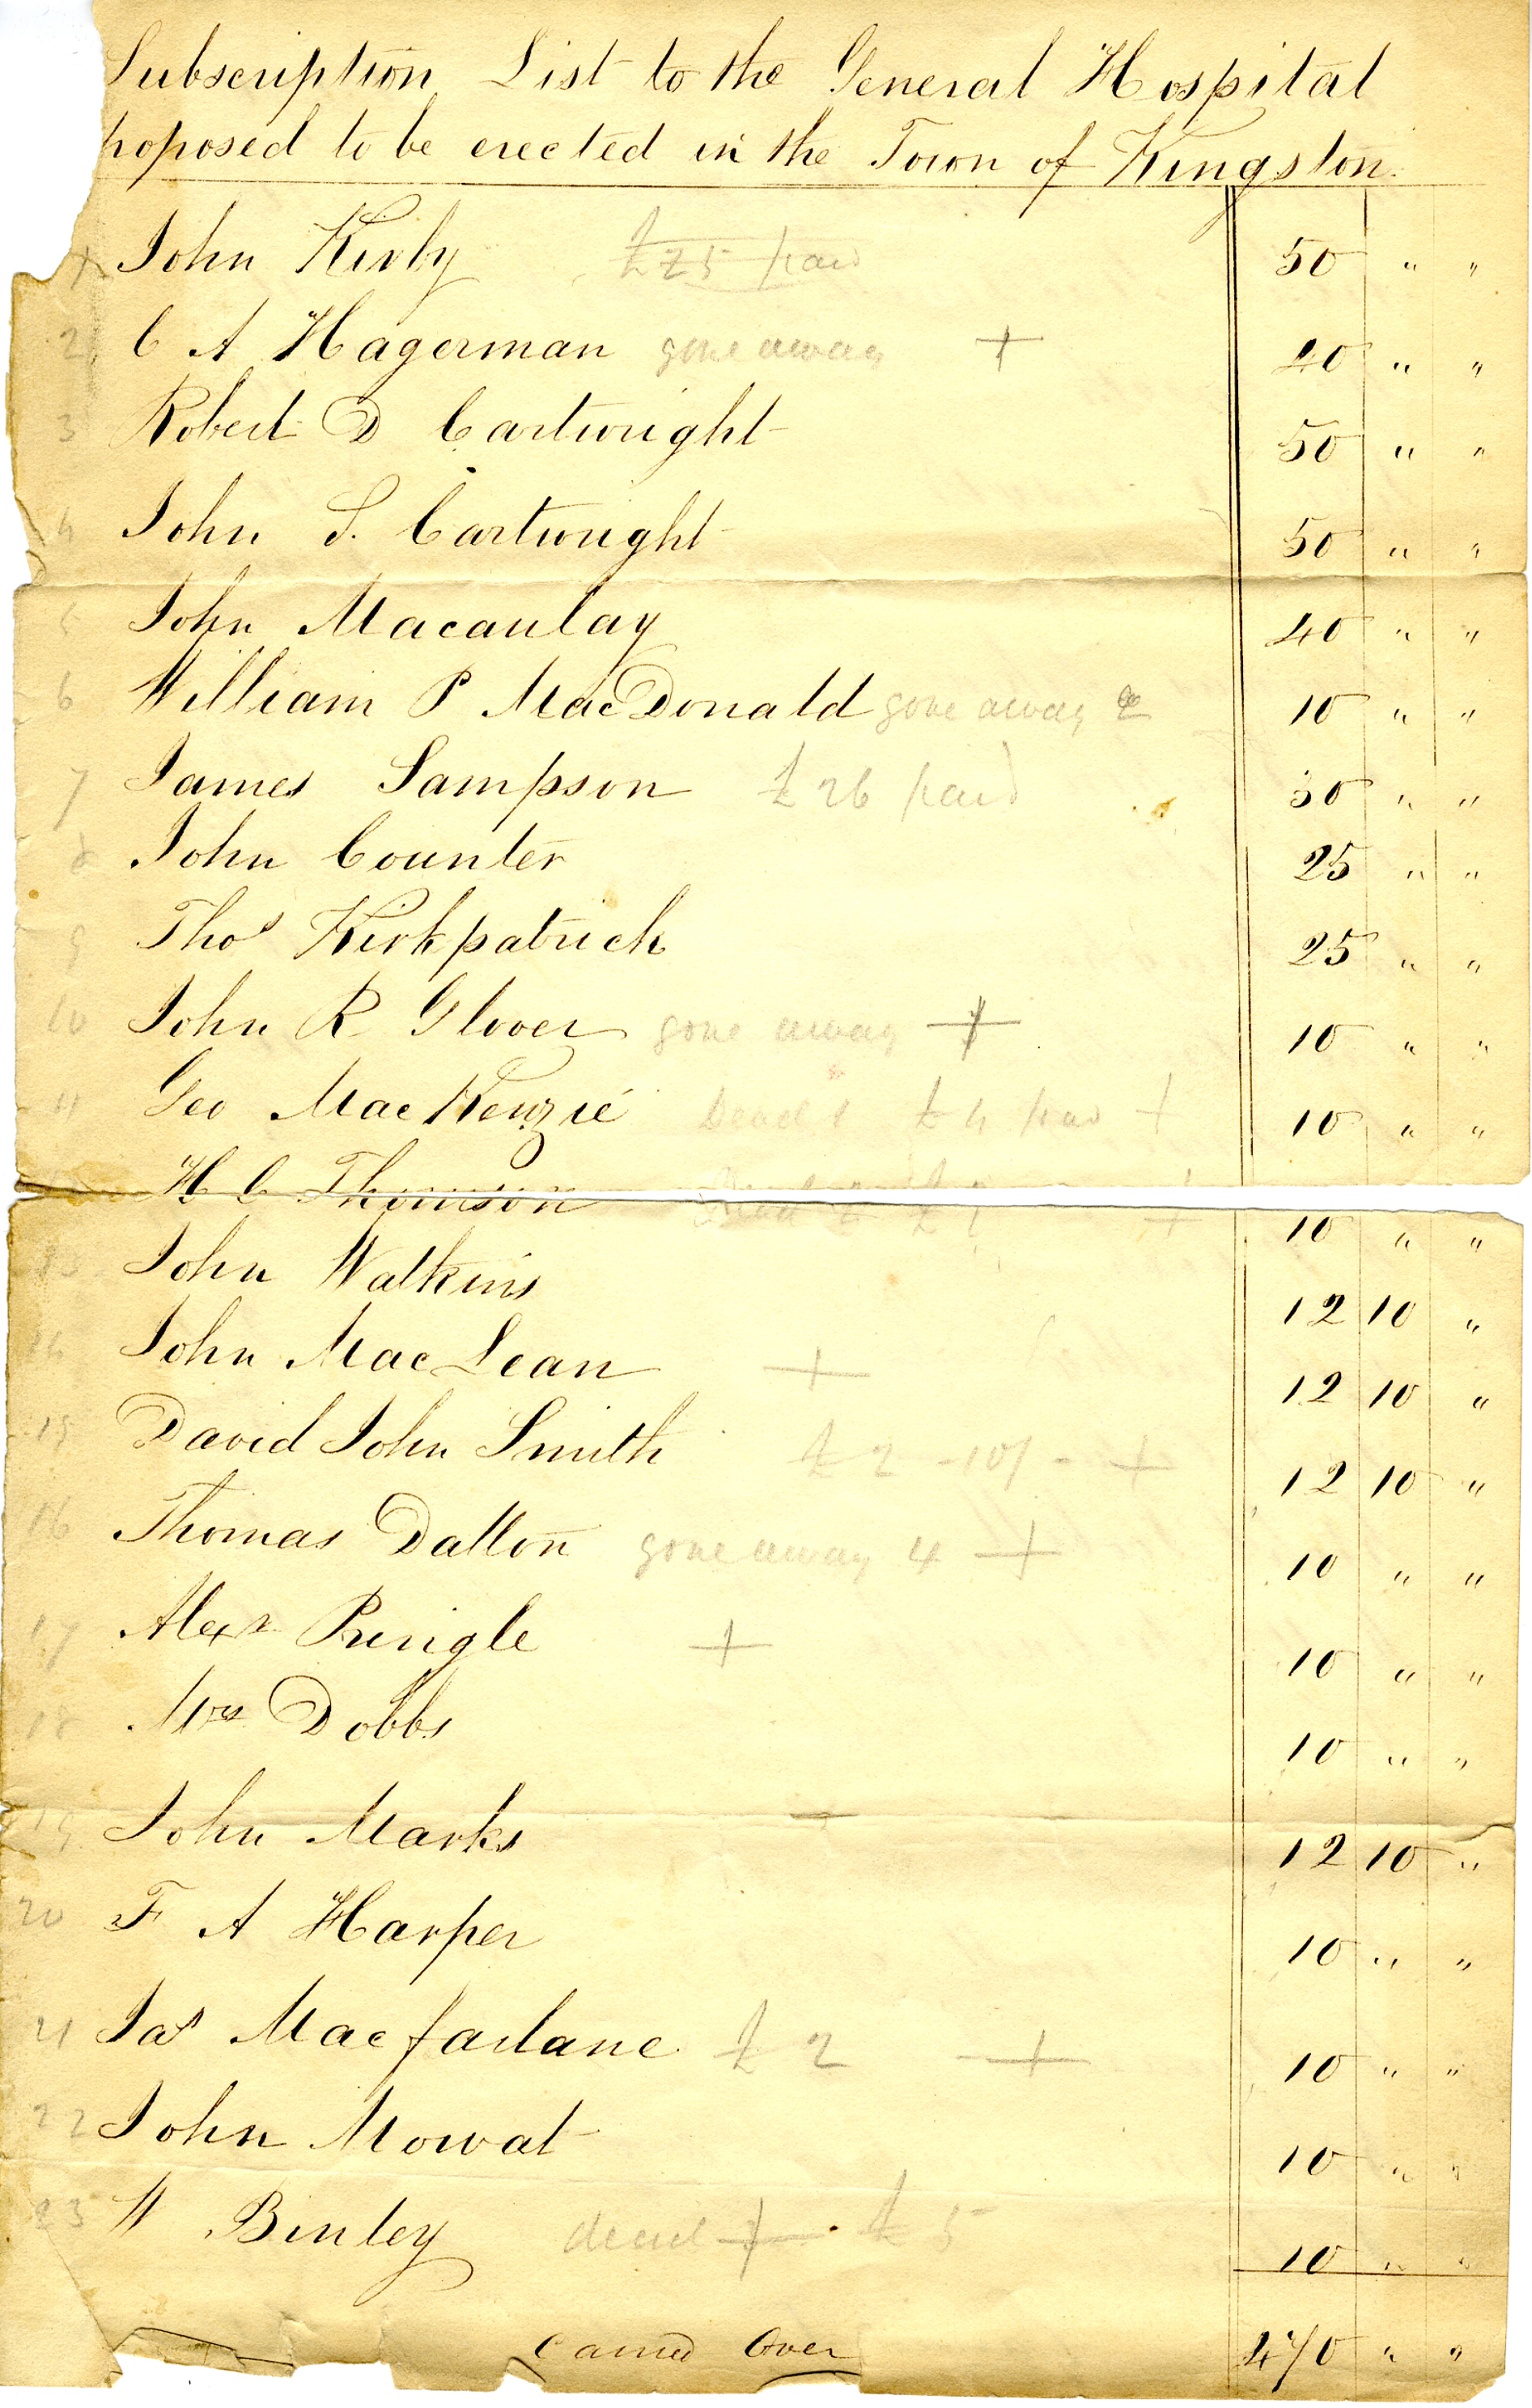 Subscription List to the General Hospital
roposed to be erected in the Town of Kingston.
1 John Kirby £25 paid 50 " "
2 C A Hagerman gone away + 20 " "
3 Robert D Cartwright 50 " "
4 John S. Cartwright 50 " "
5 John Macaulay 40 " "
6 William P MacDonald gone away 2 10 " "
7 James Sampson £26 paid 50 " "
8 John Counter 25 " "
9 Thos Kirkpatrick 25 " "
10 John R Glover gone away + 10 " "
11 Geo MacKenzie Dead £4 paid + 10 " "
H C Thomson Dead + 10 " "
13 John Watkins 12 10 "
14 John MacLean + 12 10 "
15 David John Smith £2 -10/- + 12 10 "
16 Thomas Dalton gone away 4 + 10 " "
17 Alexr Pringle + 10 " "
18 Mrs Dobbs 10 " "
19 John Marks 12 10 "
20 F A Harper 10 " "
21 Jas Macfarlane £2 + 10 " "
22 John Mowat 10 " "
23 W Binley dead + £5 10 " "
Carried Over 470 " "